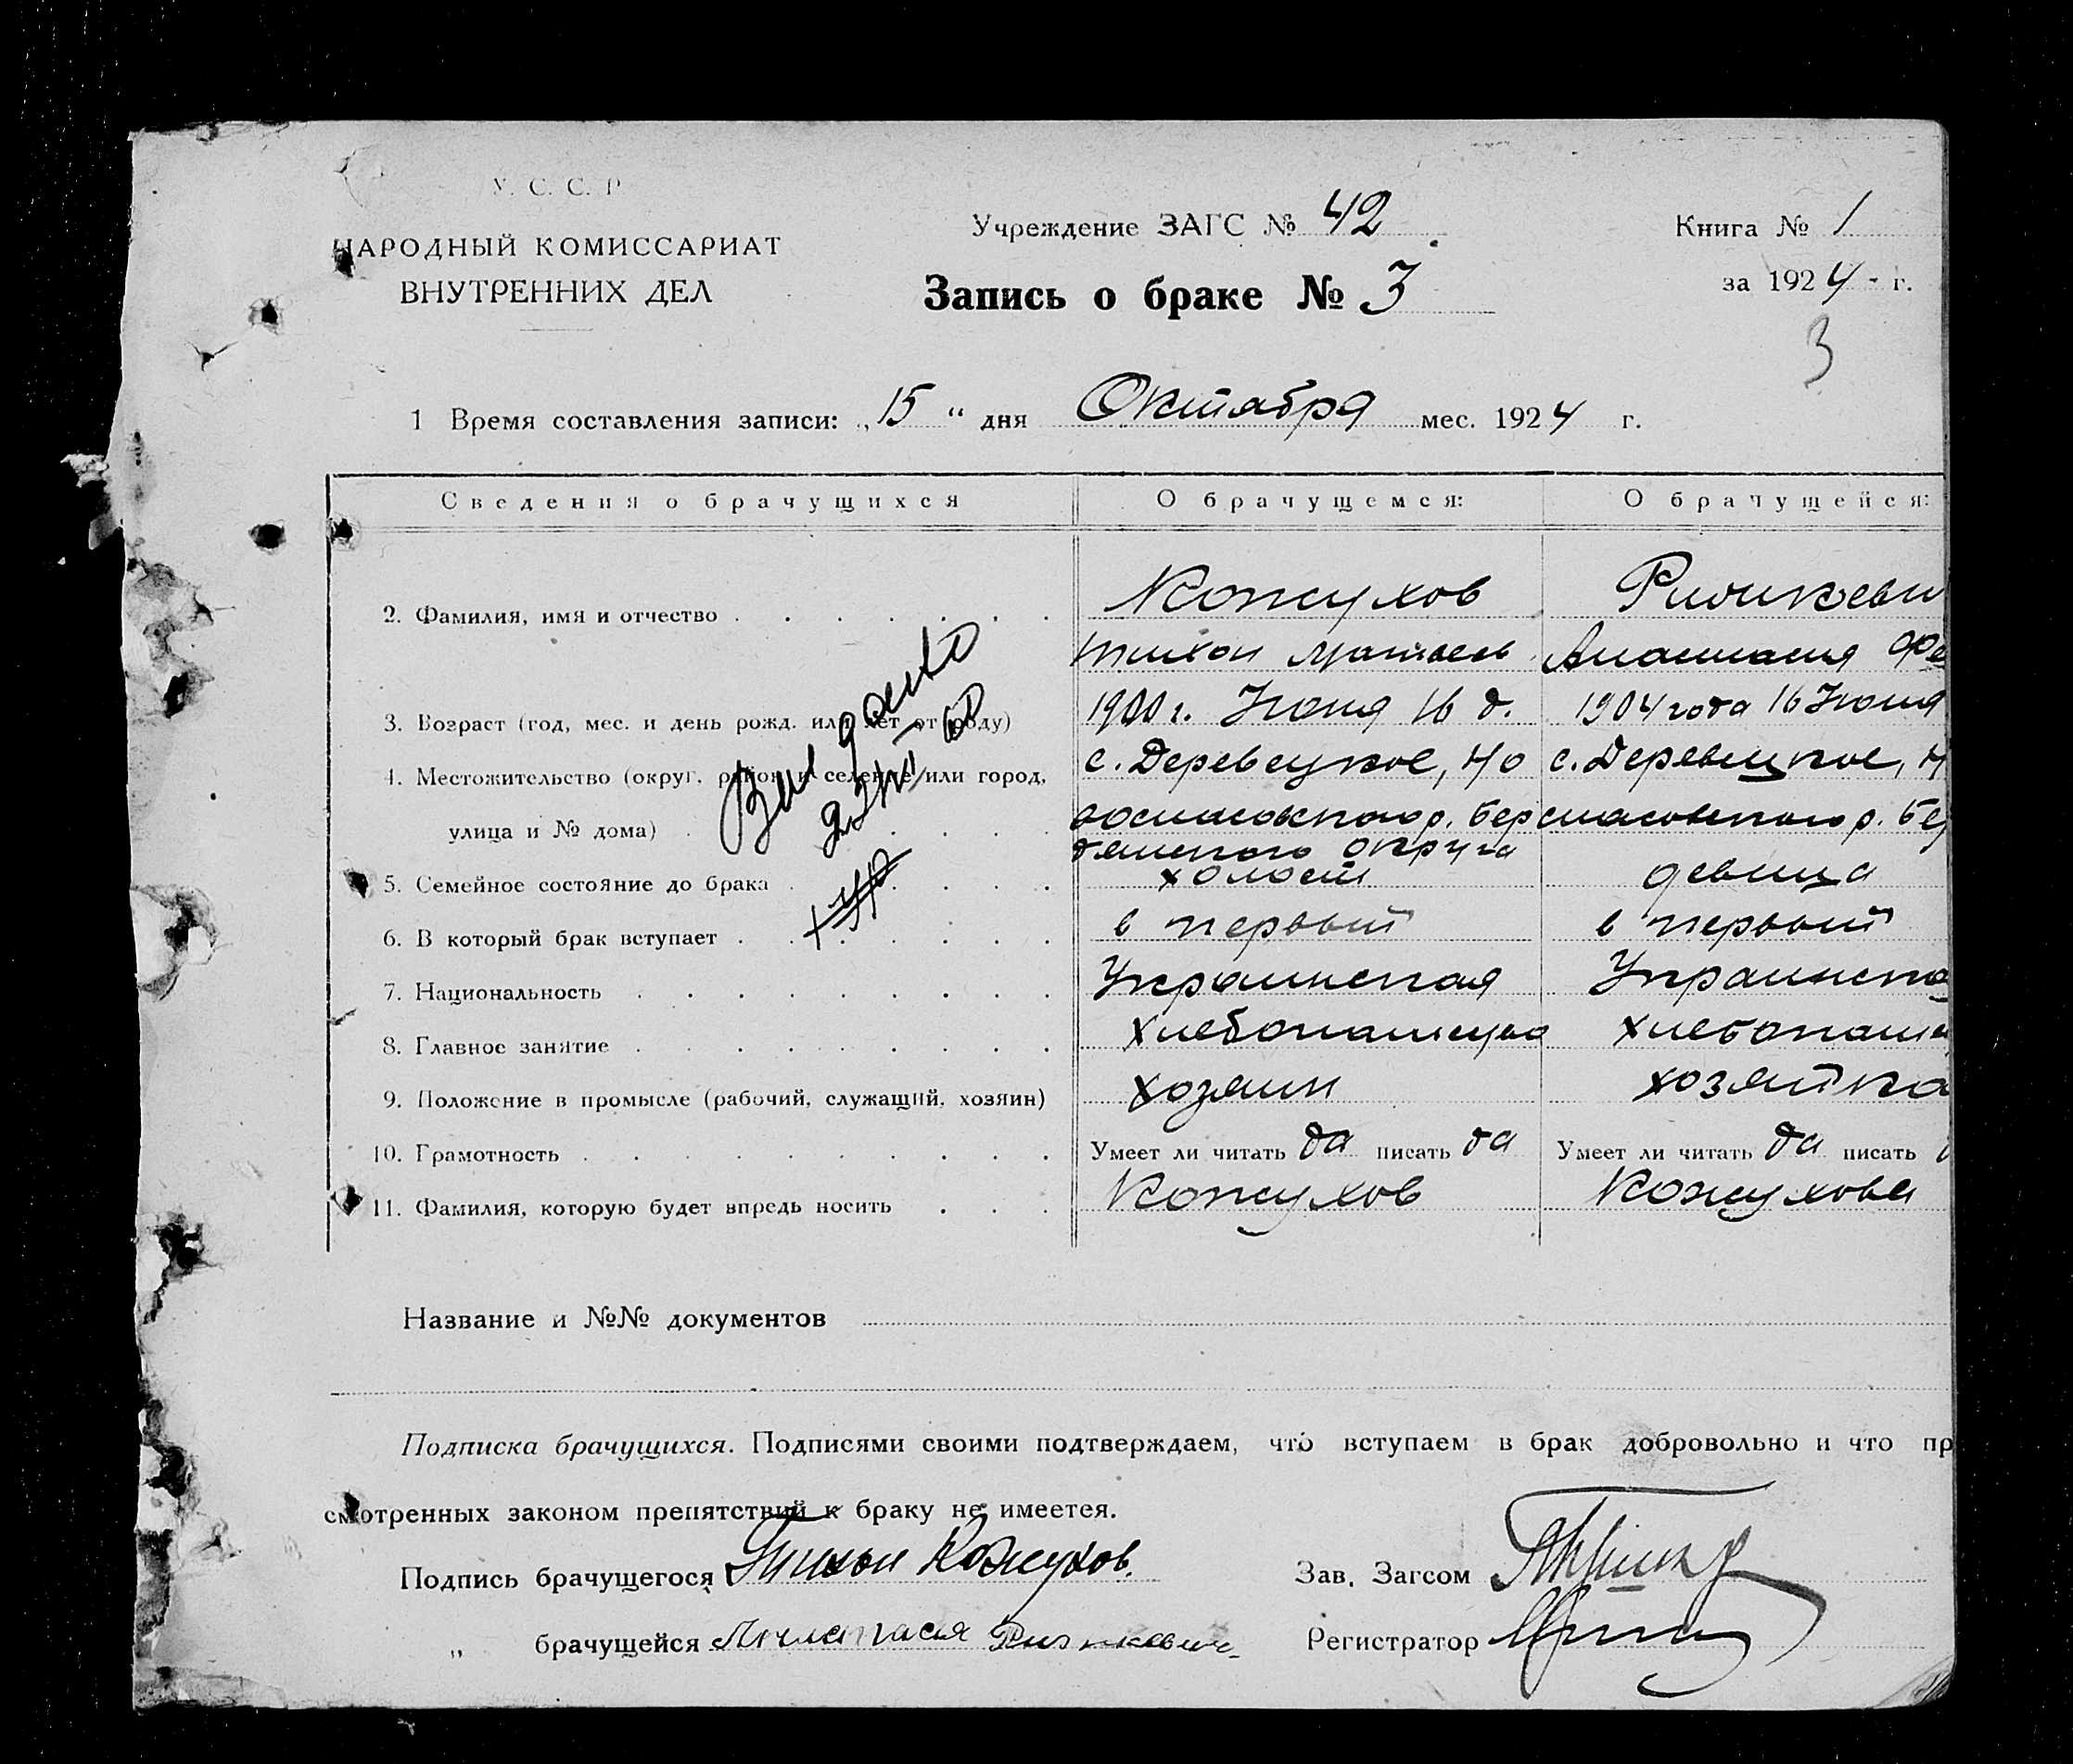 У. С. С. Р
НАРОДНЫЙ КОМИССАРИАТ
ВНУТРЕННИХ ДЕЛ
Учреждение ЗАГС № 42
Запись о браке № 3
Книга № 1
за 1924 г.
3
1 Время составления записи: „15“ дня Октября мес. 1924 г.
Сведения о брачущихся О брачущемся: О брачущейся:
2. Фамилия, имя и отчество Кожухов
Тихон Анастасия
3. Возраст (год, мес. и день рожд. или лет от роду) 1900 г. Июня 16 д. 1904 года 16 Июня
4. Местожительство (округ, район и селение или город, с. Деревецкое, Но с. Деревецкое, Н
улица и № дома) р. Бер р. Бер
дянского округа
5. Семейное состояние до брака холост девица
6. В который брак вступает в первый в первый
7. Национальность Украинская Украинска
8. Главное занятие хлебопашество хлебопаше
9. Положение в промысле (рабочий, служащий, хозяин) хозяин хозяйка
10. Грамотность Умеет ли читать да писать да Умеет ли читать да писать
11. Фамилия, которую будет впредь носить Кожухов Кожухова
Название и №№ документов
Подписка брачущихся. Подписями своими подтверждаем, что вступаем в брак добровольно и что пр
смотренных законом препятствий к браку не имеется.
Подпись брачущегося Тихон Кожухов. Зав. Загсом
„ брачущейся Регистратор